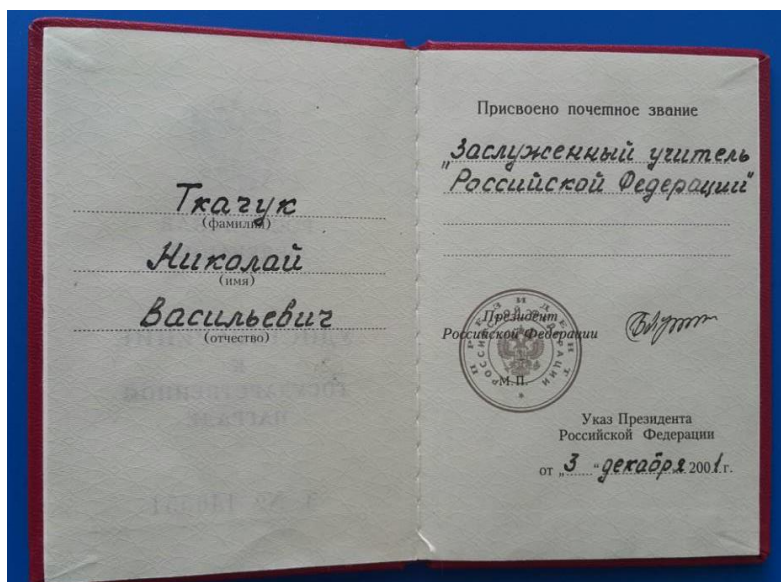 Ткачук
(фамилия)
Николай
(имя)
Васильевич
(отчество)
Присвоено почетное звание
„Заслуженный учитель
Российской Федерации"
ПРЕЗИДЕНТ
РОССИЙСКОЙ ФЕДЕРАЦИИ
Президент
Российской Федерации
М.П.
Указ Президента
Российской Федерации
от „3 “ декабря 2001 г.